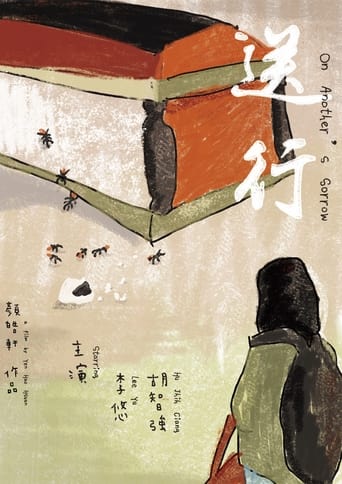 On Another's Sorrow
送行
Hu Jhih Ciang
胡智強
Lee Yu
李悠
Starring
主演
a film by Yen Hao Hsuan
顏皓軒 作品